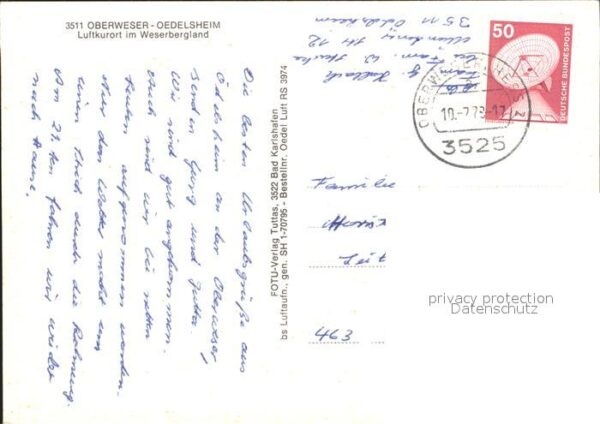 3511 OBERWESER - OEDELSHEIM
Luftkurort im Weserbergland
Die besten Urlaubsgrüße aus
Ödelsheim an der Oberweser,
senden Georg und Jutta.
Wir sind gut angekommen.
Auch sind wir bei netten
Leuten aufgenommen worden.
Nur das Wetter macht uns
einen Strich durch die Rechnung.
Am 21. ten fahren wir wieder
nach Hause.
FOTU-Verlag Tuttas, 3522 Bad Karlshafen
bs Luftaufn., gen. SH 1-70795 - Bestellnr. Oedel Luft RS 3974
bei Fam. W.
3511 Oedelsheim
50
DEUTSCHE BUNDESPOST
OBERWESER
3525
Familie
463
privacy protection
Datenschutz